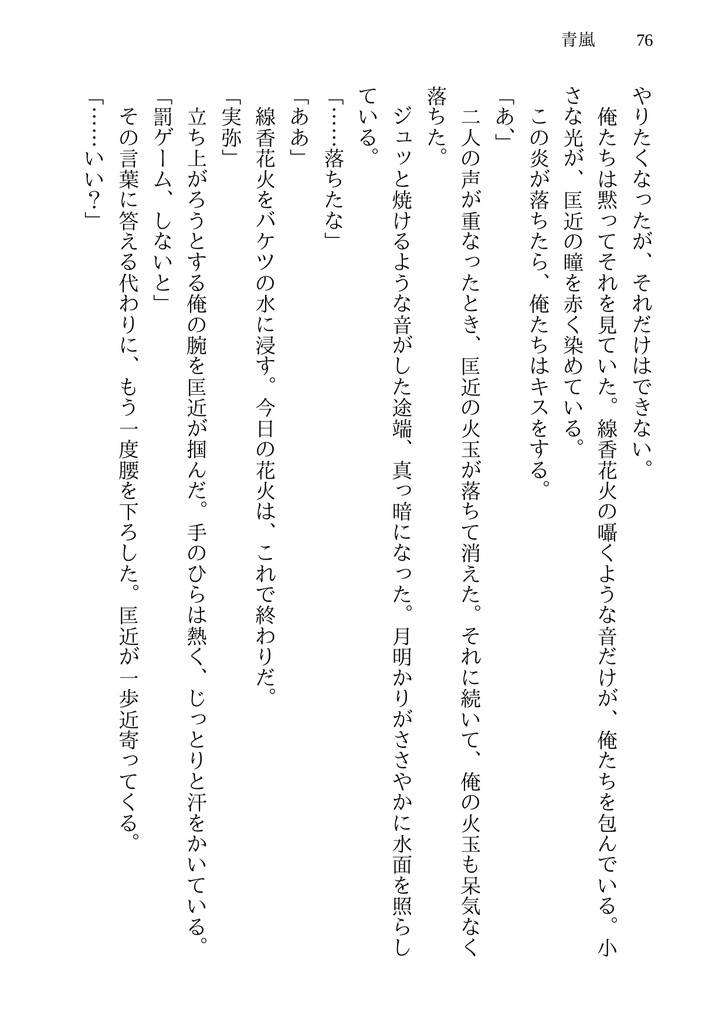 青嵐 76
やりたくなったが、それだけはできない。
俺たちは黙ってそれを見ていた。線香花火の囁くような音だけが、俺たちを包んでいる。小
さな光が、匡近の瞳を赤く染めている。
この炎が落ちたら、俺たちはキスをする。
「あ、」
二人の声が重なったとき、匡近の火玉が落ちて消えた。それに続いて、俺の火玉も呆気なく
落ちた。
ジュッと焼けるような音がした途端、真っ暗になった。月明かりがささやかに水面を照らし
ている。
「……落ちたな」
「ああ」
線香花火をバケツの水に浸す。今日の花火は、これで終わりだ。
「実弥」
立ち上がろうとする俺の腕を匡近が掴んだ。手のひらは熱く、じっとりと汗をかいている。
「罰ゲーム、しないと」
その言葉に答える代わりに、もう一度腰を下ろした。匡近が一歩近寄ってくる。
「……いい？」